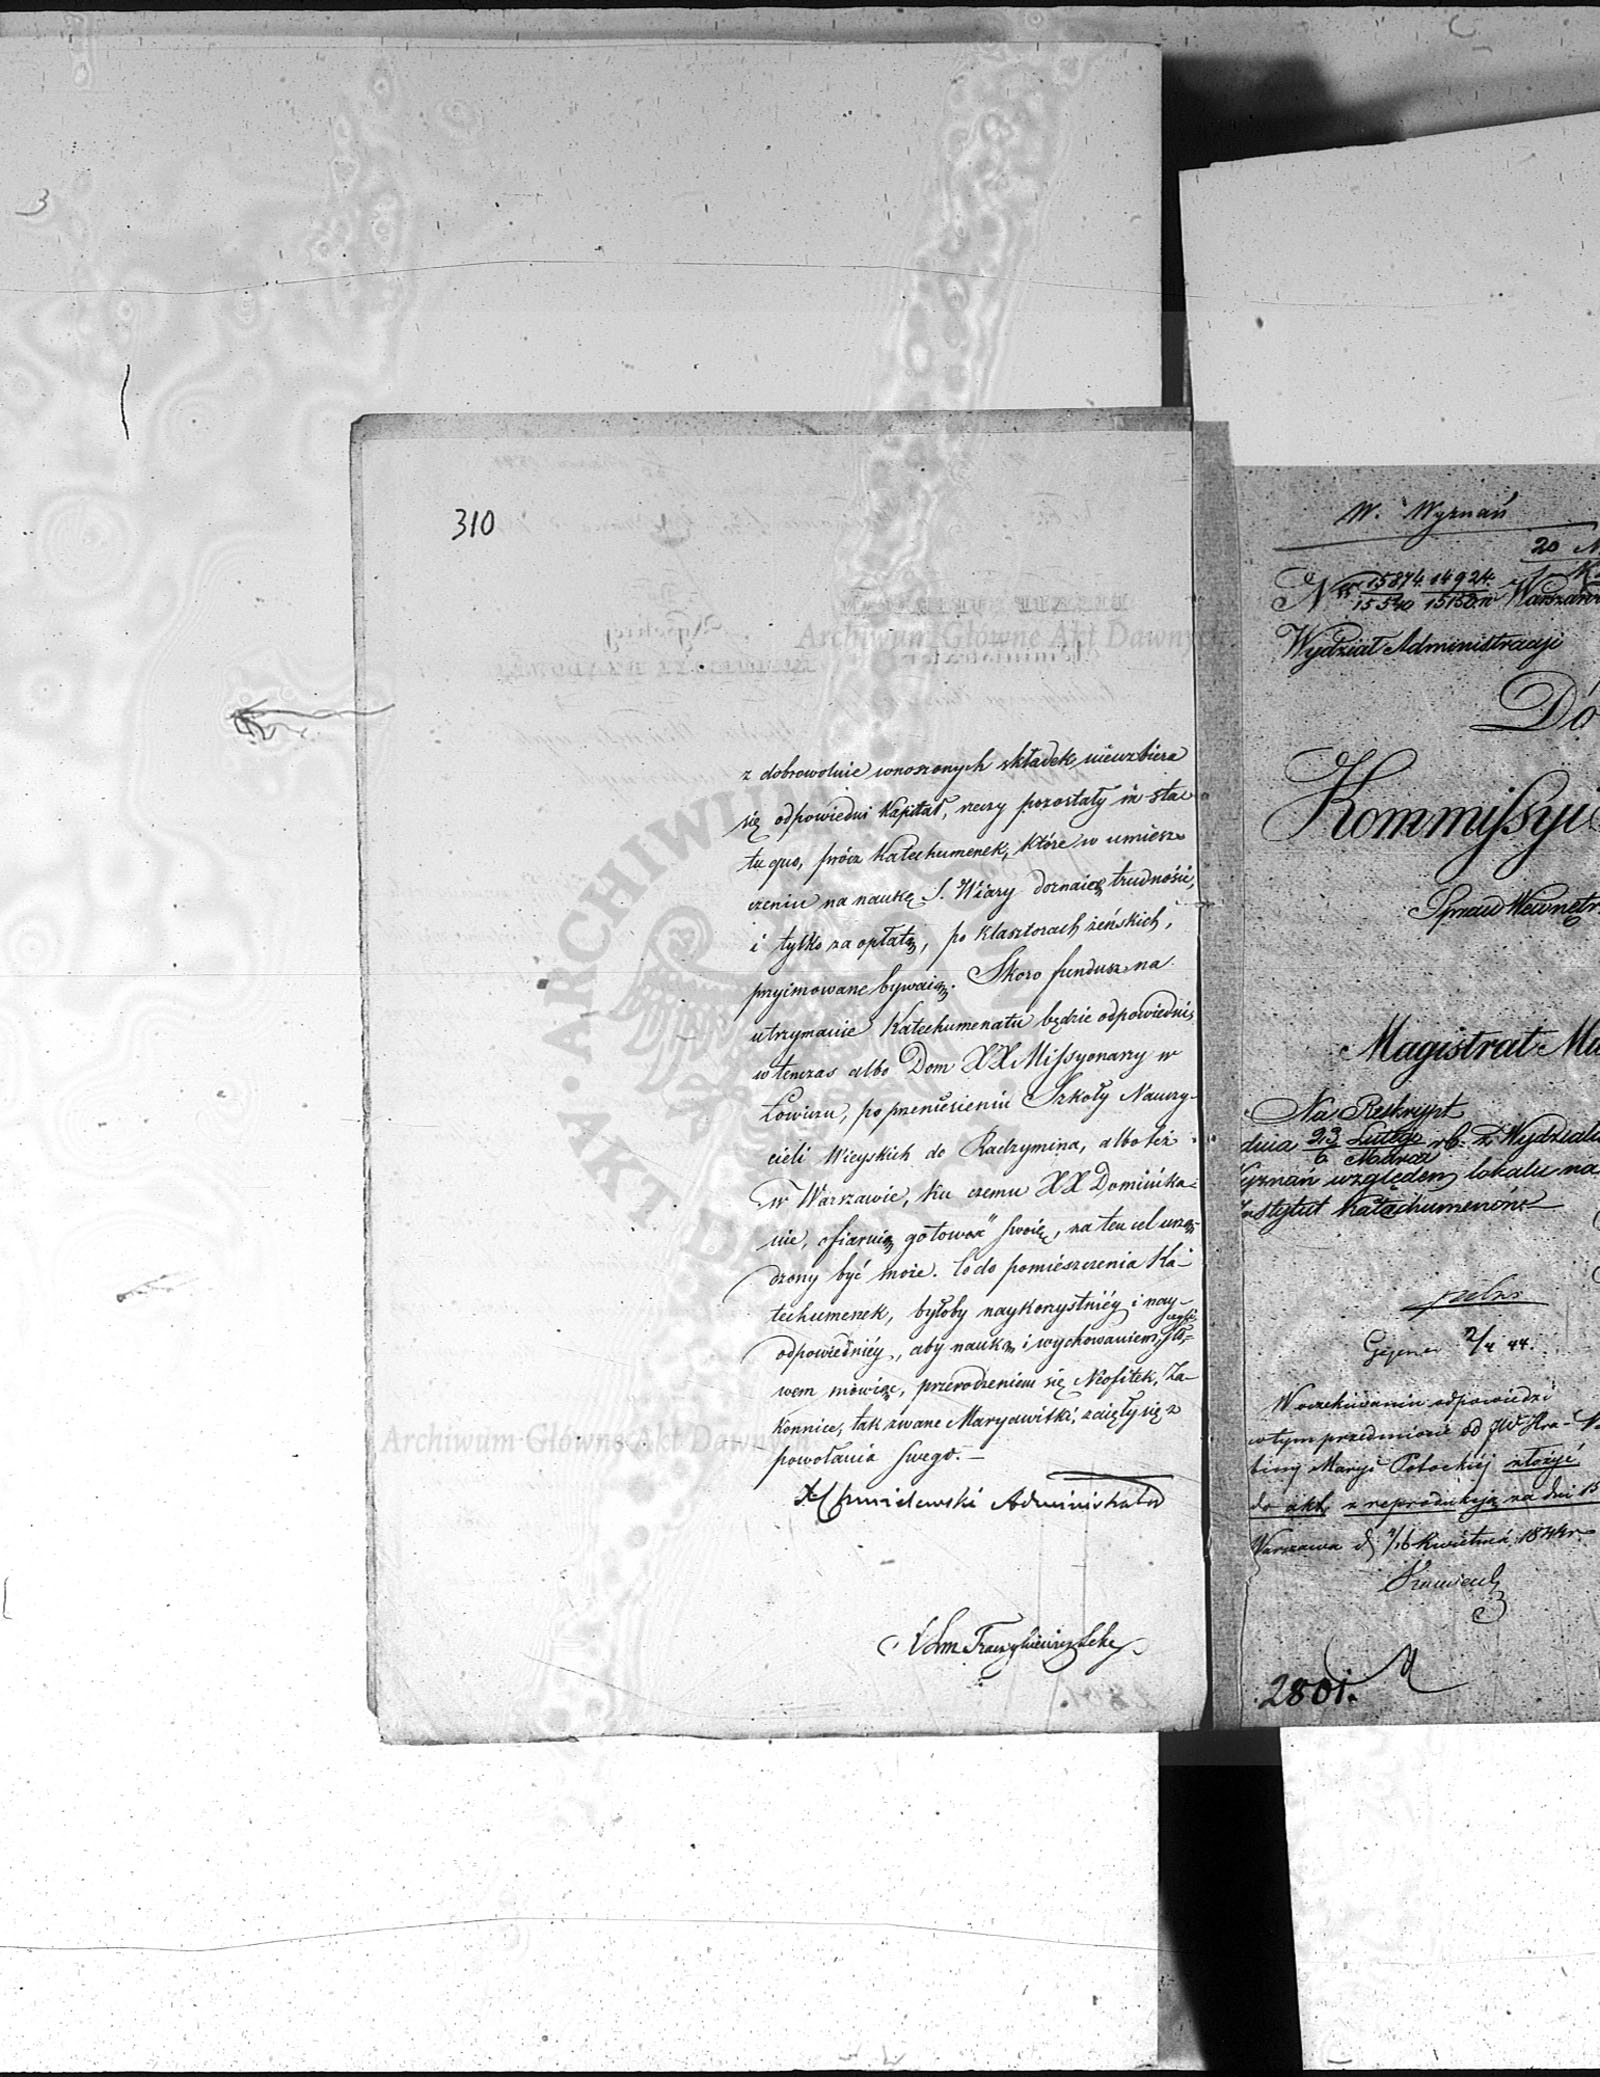 310
z dobrowolnie wnoszonych składek nieuzbiera
się odpowiedni Kapitał, rzeczy pozostały in sta-
tu quo, prócz Katechumenek, które w umiesz-
czeniu na naukę S. Wiary doznaią trudności,
i tylko za opłatą, po klasztorach żeńskich,
przyimowane bywaią. Skoro fundusz na
utrzymanie Katechumenatu będzie odpowiedni,
wtenczas albo Dom XX Missyonarzy w
Łowiczu, po przeniesieniu Szkoły Nauczy-
cieli Wieyskich do Radzymina, albo też
w Warszawie, ku czemu XX Dominika-
nie, ofiaruią gotowość swoię, na ten cel urzą-
dzony być może. Co do pomieszczenia Ka-
techumenek, byłoby naykorzystniéy i nay-
odpowiedniéy, aby nauką i wychowaniem, czyli sło-
wem mówiąc, przerodzeniem się Neofitek, Za-
konnice, tak zwane Maryawitki, zaięły się z
powołania swego. —
X Chmielewski Administrator
W. Wyznań
20 M
N 15874. 14924.
15540 15150. Warszawa
Wydział Administracji
Do
Kommissyi
Spraw Wewnętr
Magistrat Mi
Na Reskrypt
dnia 23 Lutego rb. z Wydziału
6 Marca
Wyznań względem lokalu na
Instytut Katachumenów
2/4 44.
W oczekiwaniu odpowiedzi
w tym przedmiocie od JW Hra-
biny Maryi Potockiéj złożyć
do akt, z reprodukcją za dni 15
Warszawa d. 4/16 Kwietnia 1844r.
2801.
Archiwum Główne Akt Dawnych
Archiwum Główne Akt Dawnych